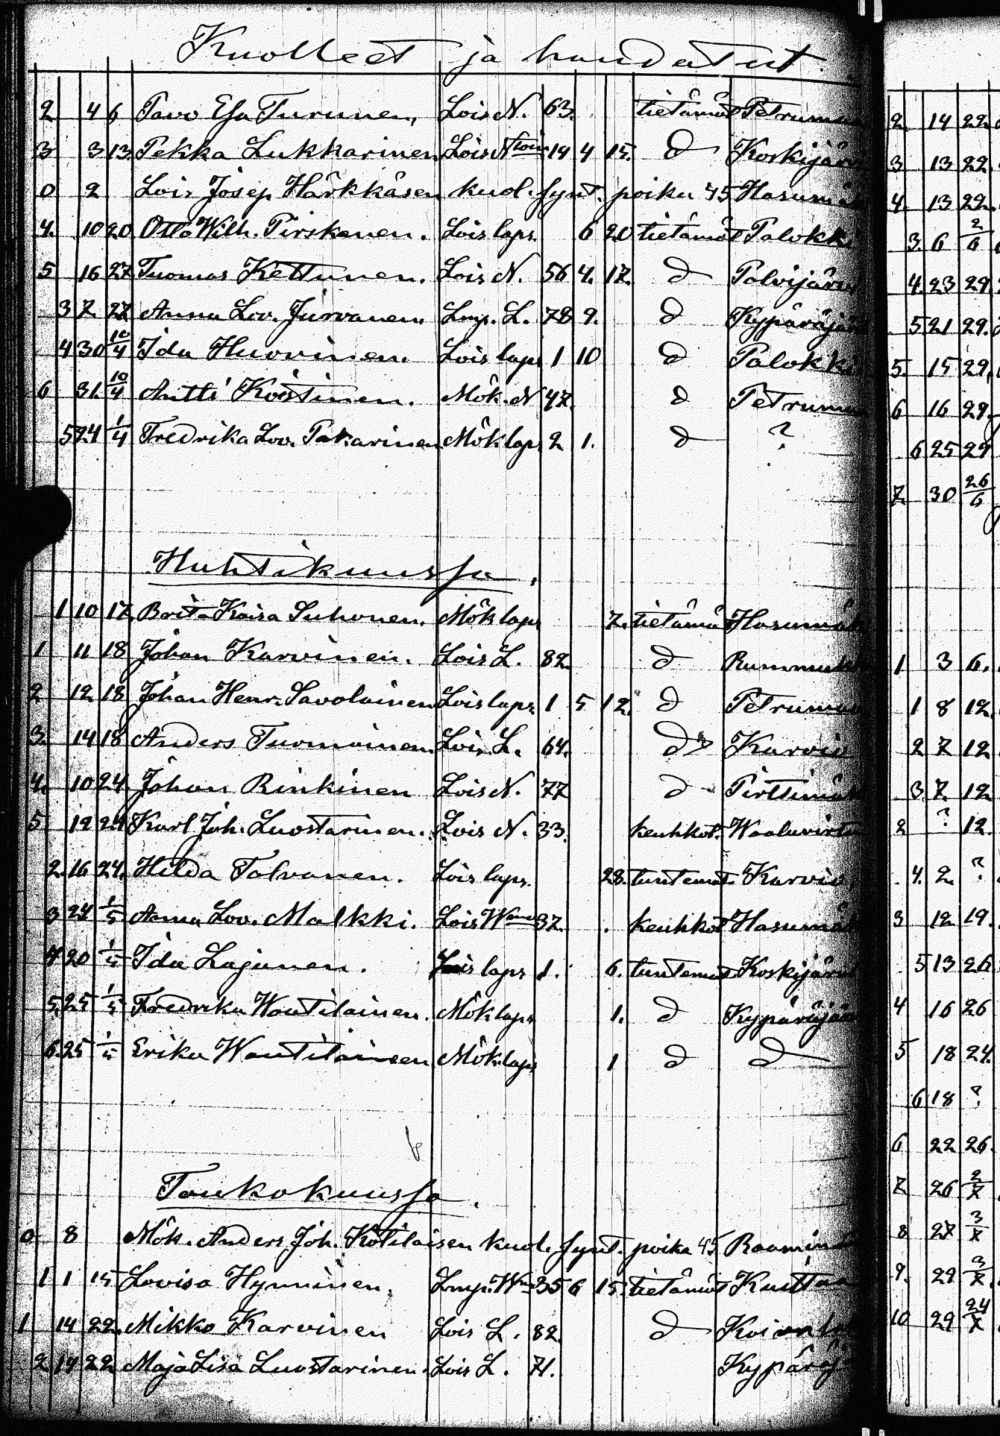 Kuolleet ja haudatut.
2 4 6 Pavo Esa Turunen, Lois N. 63. tietämät Petruma
3 3 13 Pekka Lukkarinen Lois N 14 4 15. d Koskijär
0 2 Lois Josep Härkkäsen kuol. synt. poika 45 Hasumä
4. 10 20 Otto Wilh. Pirskanen. Lois laps. 6 20 tietämät Palokk
5 16 27 Tuomas Kettunen. Lois N. 56 4. 17. d Polvijärv
3 7 27 Anna Lov. Jurvanen. Lmp. L. 78 9. d Kypäräjä
4 30 10/4 Ida Huovinen. Lois laps 1 10 d Palokki
6 31. 10/4 Antti Köstinen. Mök. N 47. d Petruma
5 24 1/4 Fredrika Lov. Pakarinen Mök laps 2 1. d ?
Huhtikuussa.
1 10 17. Brita Kaisa Suhonen. Mök laps 7. tietämä Hasumäk
1 11 18 Johan Karvinen. Lois L. 82. d Rummuk
2 12 18 Johan Henr. Savolainen Lois laps 1 5 12. d Petruma
3. 14 18 Anders Tuomainen. Lois L. 64. d Karvio
4. 10 24 Johan Rinkinen Lois N. 77 d Pirttimäk
5 19 24 Karl Joh. Luostarinen. Lois N. 33. keuhkot. Waaluvirta
2. 16 24. Hilda Tolvanen. Lois laps. 28. tuntemat. Karvio
3 24 1/5 Anna Lov. Malkki. Lois W 37. keuhkot Hasumäk
4 20 1/5 Ida Lajunen. Lois laps 1. 6. tuntemat Koskijärv
5 25 1/5 Fredrika Woutilainen. Mök laps 1. d Kypäräjä
6. 25 1/5 Erika Woutilainen Mök laps 1 d d
Toukokuussa.
0 8 Mök. Anders Joh. Kötiläisen kuol. synt. poika 45 Raamin
1 1 15 Lovisa Hynninen. Lmp. W 35 6 15. tietämät Kuitta
1 14 22. Mikko Karvinen Lois L. 82. d Koivu
2. 14 22. Maja Lisa Luostarinen. Lois L. 71. Kypäräj
2. 14 22.
3 13 22.
4. 13 22.
3. 6 2/6
4. 23 29
5 21 29.
5. 15 29.
6 16 29.
6 25 29
7. 30 26/6
1 3 6.
1 8 12.
2 7 12
3 7. 12
2 ? 12.
4. 2. ?
3 12 19.
5 13 26
4 16 26
5 18 24.
6 18 ?
6 22 26.
7. 26 2/7
8 27 3/7
9. 29 3/7.
10 29 24/7